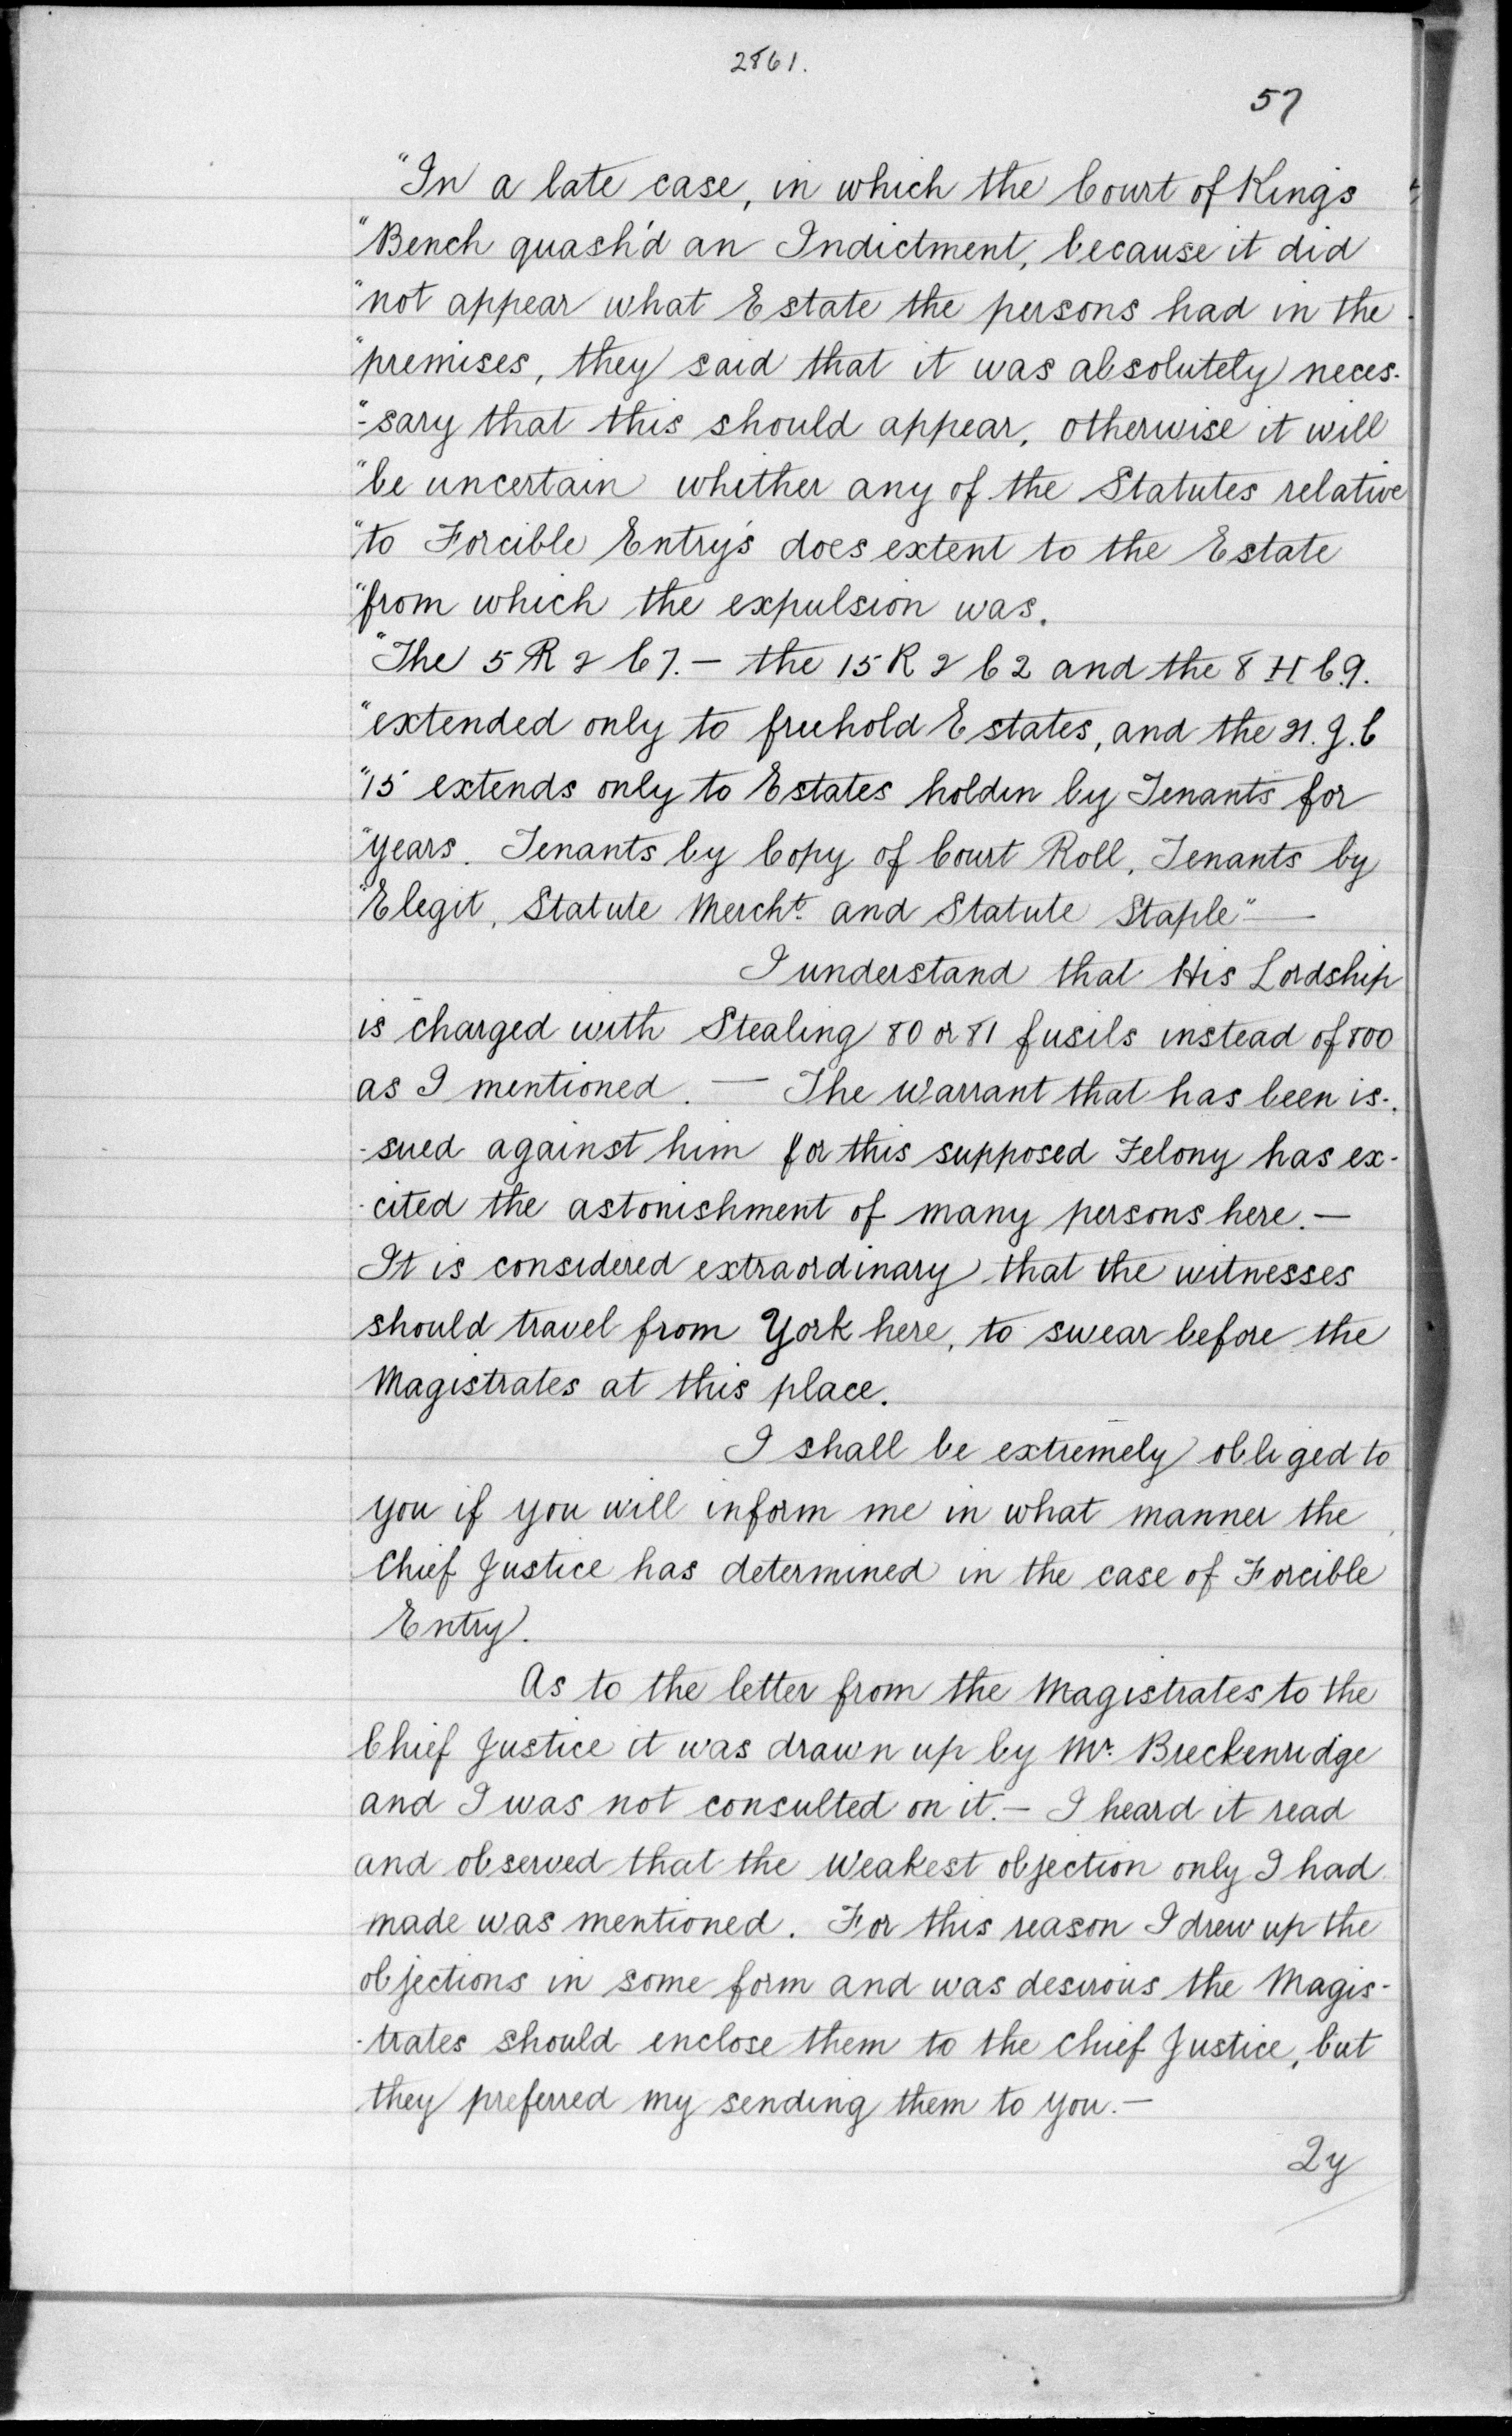 2861.
57
"In a late case, in which the Court of Kings
"Bench quash'd an Indictment, because it did
"not appear what Estate the persons had in the
"premises, they said that it was absolutely neces-
"-sary that this should appear, otherwise it will
"be uncertain whither any of the Statutes relative
"to Forcible Entry's does extent to the Estate
"from which the expulsion was.
"The 5 R 2 C 7. — the 15 R 2 C 2 and the 8 H C 9.
"extended only to freehold Estates, and the 21. J. C
"15 extends only to Estates holden by Tenants for
"years. Tenants by Copy of Court Roll, Tenants by
"Elegit, Statute Mercht. and Statute Staple" —
I understand that His Lordship
is charged with Stealing 80 or 81 fusils instead of 800
as I mentioned. — The Warrant that has been is-
-sued against him for this supposed Felony has ex-
-cited the astonishment of many persons here. —
It is considered extraordinary that the witnesses
should travel from York here, to swear before the
Magistrates at this place.
I shall be extremely obliged to
you if you will inform me in what manner the
Chief Justice has determined in the case of Forcible
Entry.
As to the letter from the Magistrates to the
Chief Justice it was drawn up by Mr. Breckenridge
and I was not consulted on it. — I heard it read
and observed that the weakest objection only I had
made was mentioned. For this reason I drew up the
objections in some form and was desirous the Magis-
-trates should enclose them to the Chief Justice, but
they preferred my sending them to you. —